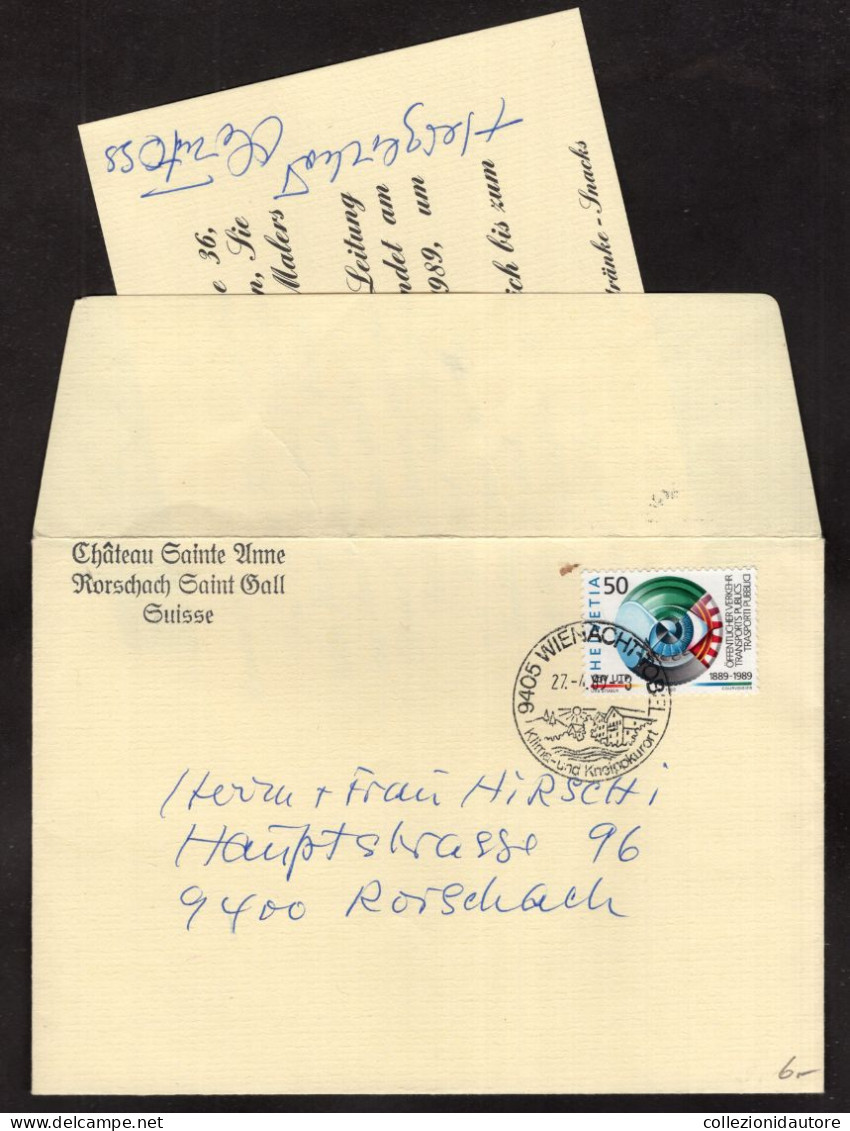 Herzlichst
e 36,
n, Sie
Malers
Leitung
ndet am
989, um
ich bis zum
tränke - Snacks
Château Sainte Anne
Rorschach Saint Gall
Suisse
HELVETIA
50
ÖFFENTLICHER VERKEHR
TRANSPORTS PUBLICS
TRASPORTI PUBBLICI
VöV UTP
1889-1989
9405 WIENACHT-TOBEL
27.-4.89.-8
Klima-und Kneippkurort
Herrn + Frau HIRSCHi
Hauptstrasse 96
9400 Rorschach
6.-
collezionidautore